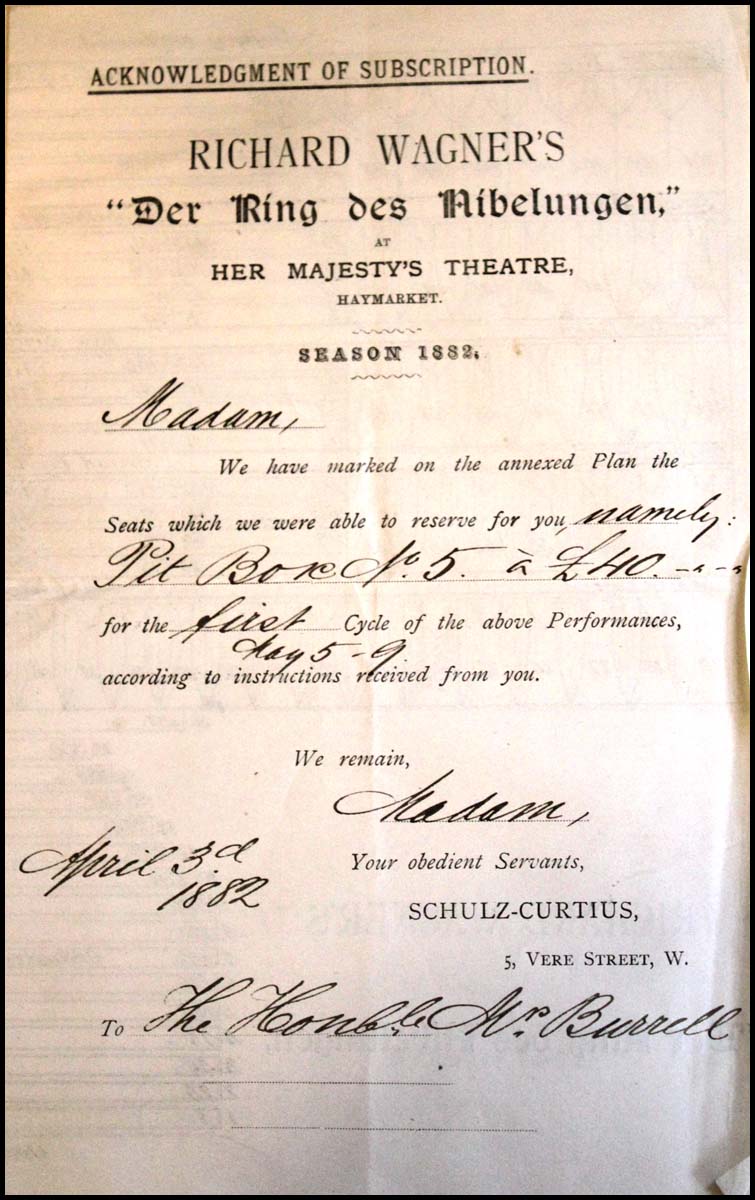 ACKNOWLEDGMENT OF SUBSCRIPTION.
RICHARD WAGNER'S
"Der Ring des Nibelungen,"
AT
HER MAJESTY'S THEATRE,
HAYMARKET.
SEASON 1882.
Madam,
We have marked on the annexed Plan the
Seats which we were able to reserve for you, namely:
Pit Box No. 5. à £40.-"-"
for the first Cycle of the above Performances,
May 5-9
according to instructions received from you.
We remain,
Madam,
April 3.d
1882
Your obedient Servants,
SCHULZ-CURTIUS,
5, VERE STREET, W.
To The Honble. Mrs. Burrell